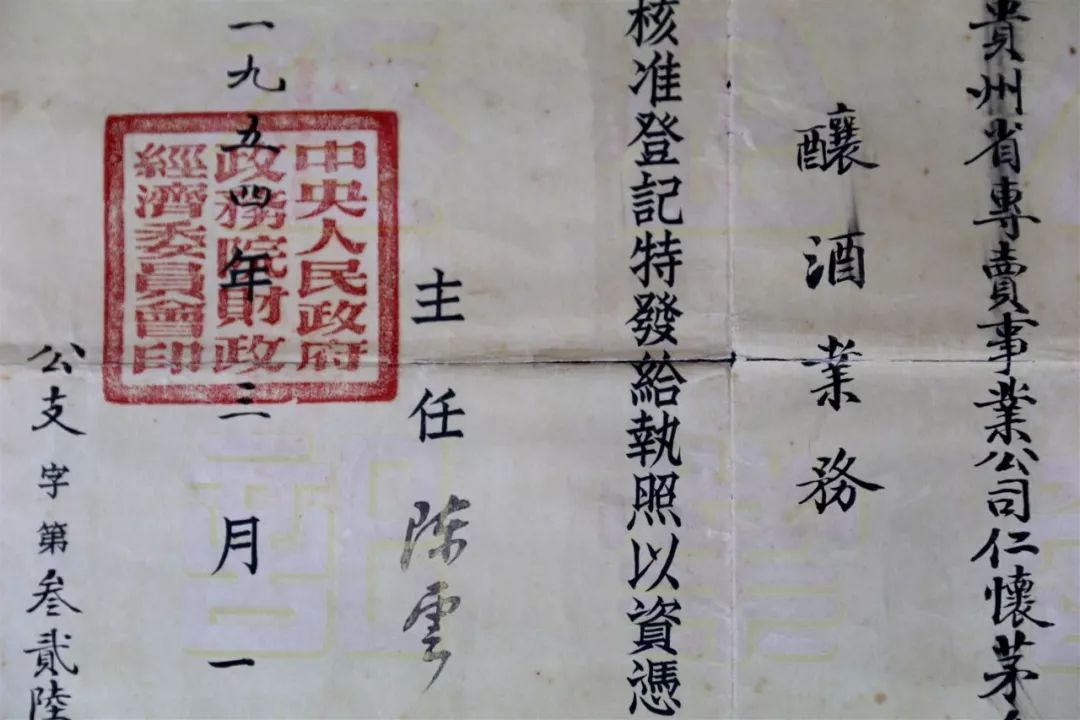 貴州省專賣事業公司仁懷茅
釀酒業務
核准登記特發給執照以資憑
主任 陳雲
中央人民政府
政務院財政
經濟委員會印
一九五四年三月一
公支字第叁貳陸